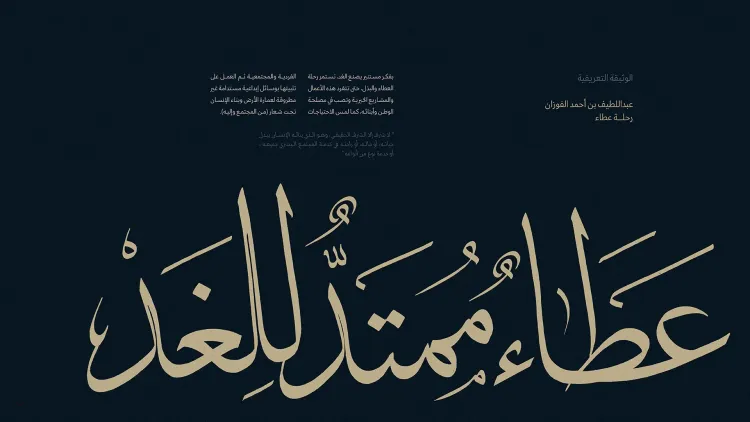 الوثيقة التعريفية
عبداللطيف بن أحمد الفوزان
رحلـة عطاء
بفكر مستنير يصنع الغد، تستمر رحلة
العطاء والبذل، حتى تنفرد هذه الأعمال
والمشاريع الخيرية وتصب في مصلحة
الوطن وأبنائه، كما تلمس الاحتياجات
الفردية والمجتمعية ثم العمل على
تلبيتها بوسائل إبداعية مستدامة غير
مطروقة لعمارة الأرض وبناء الإنسان
تحت شعار (من المجتمع وإليه).
عَطَاءٌ مُمْتَدٌّ لِلغَدْ